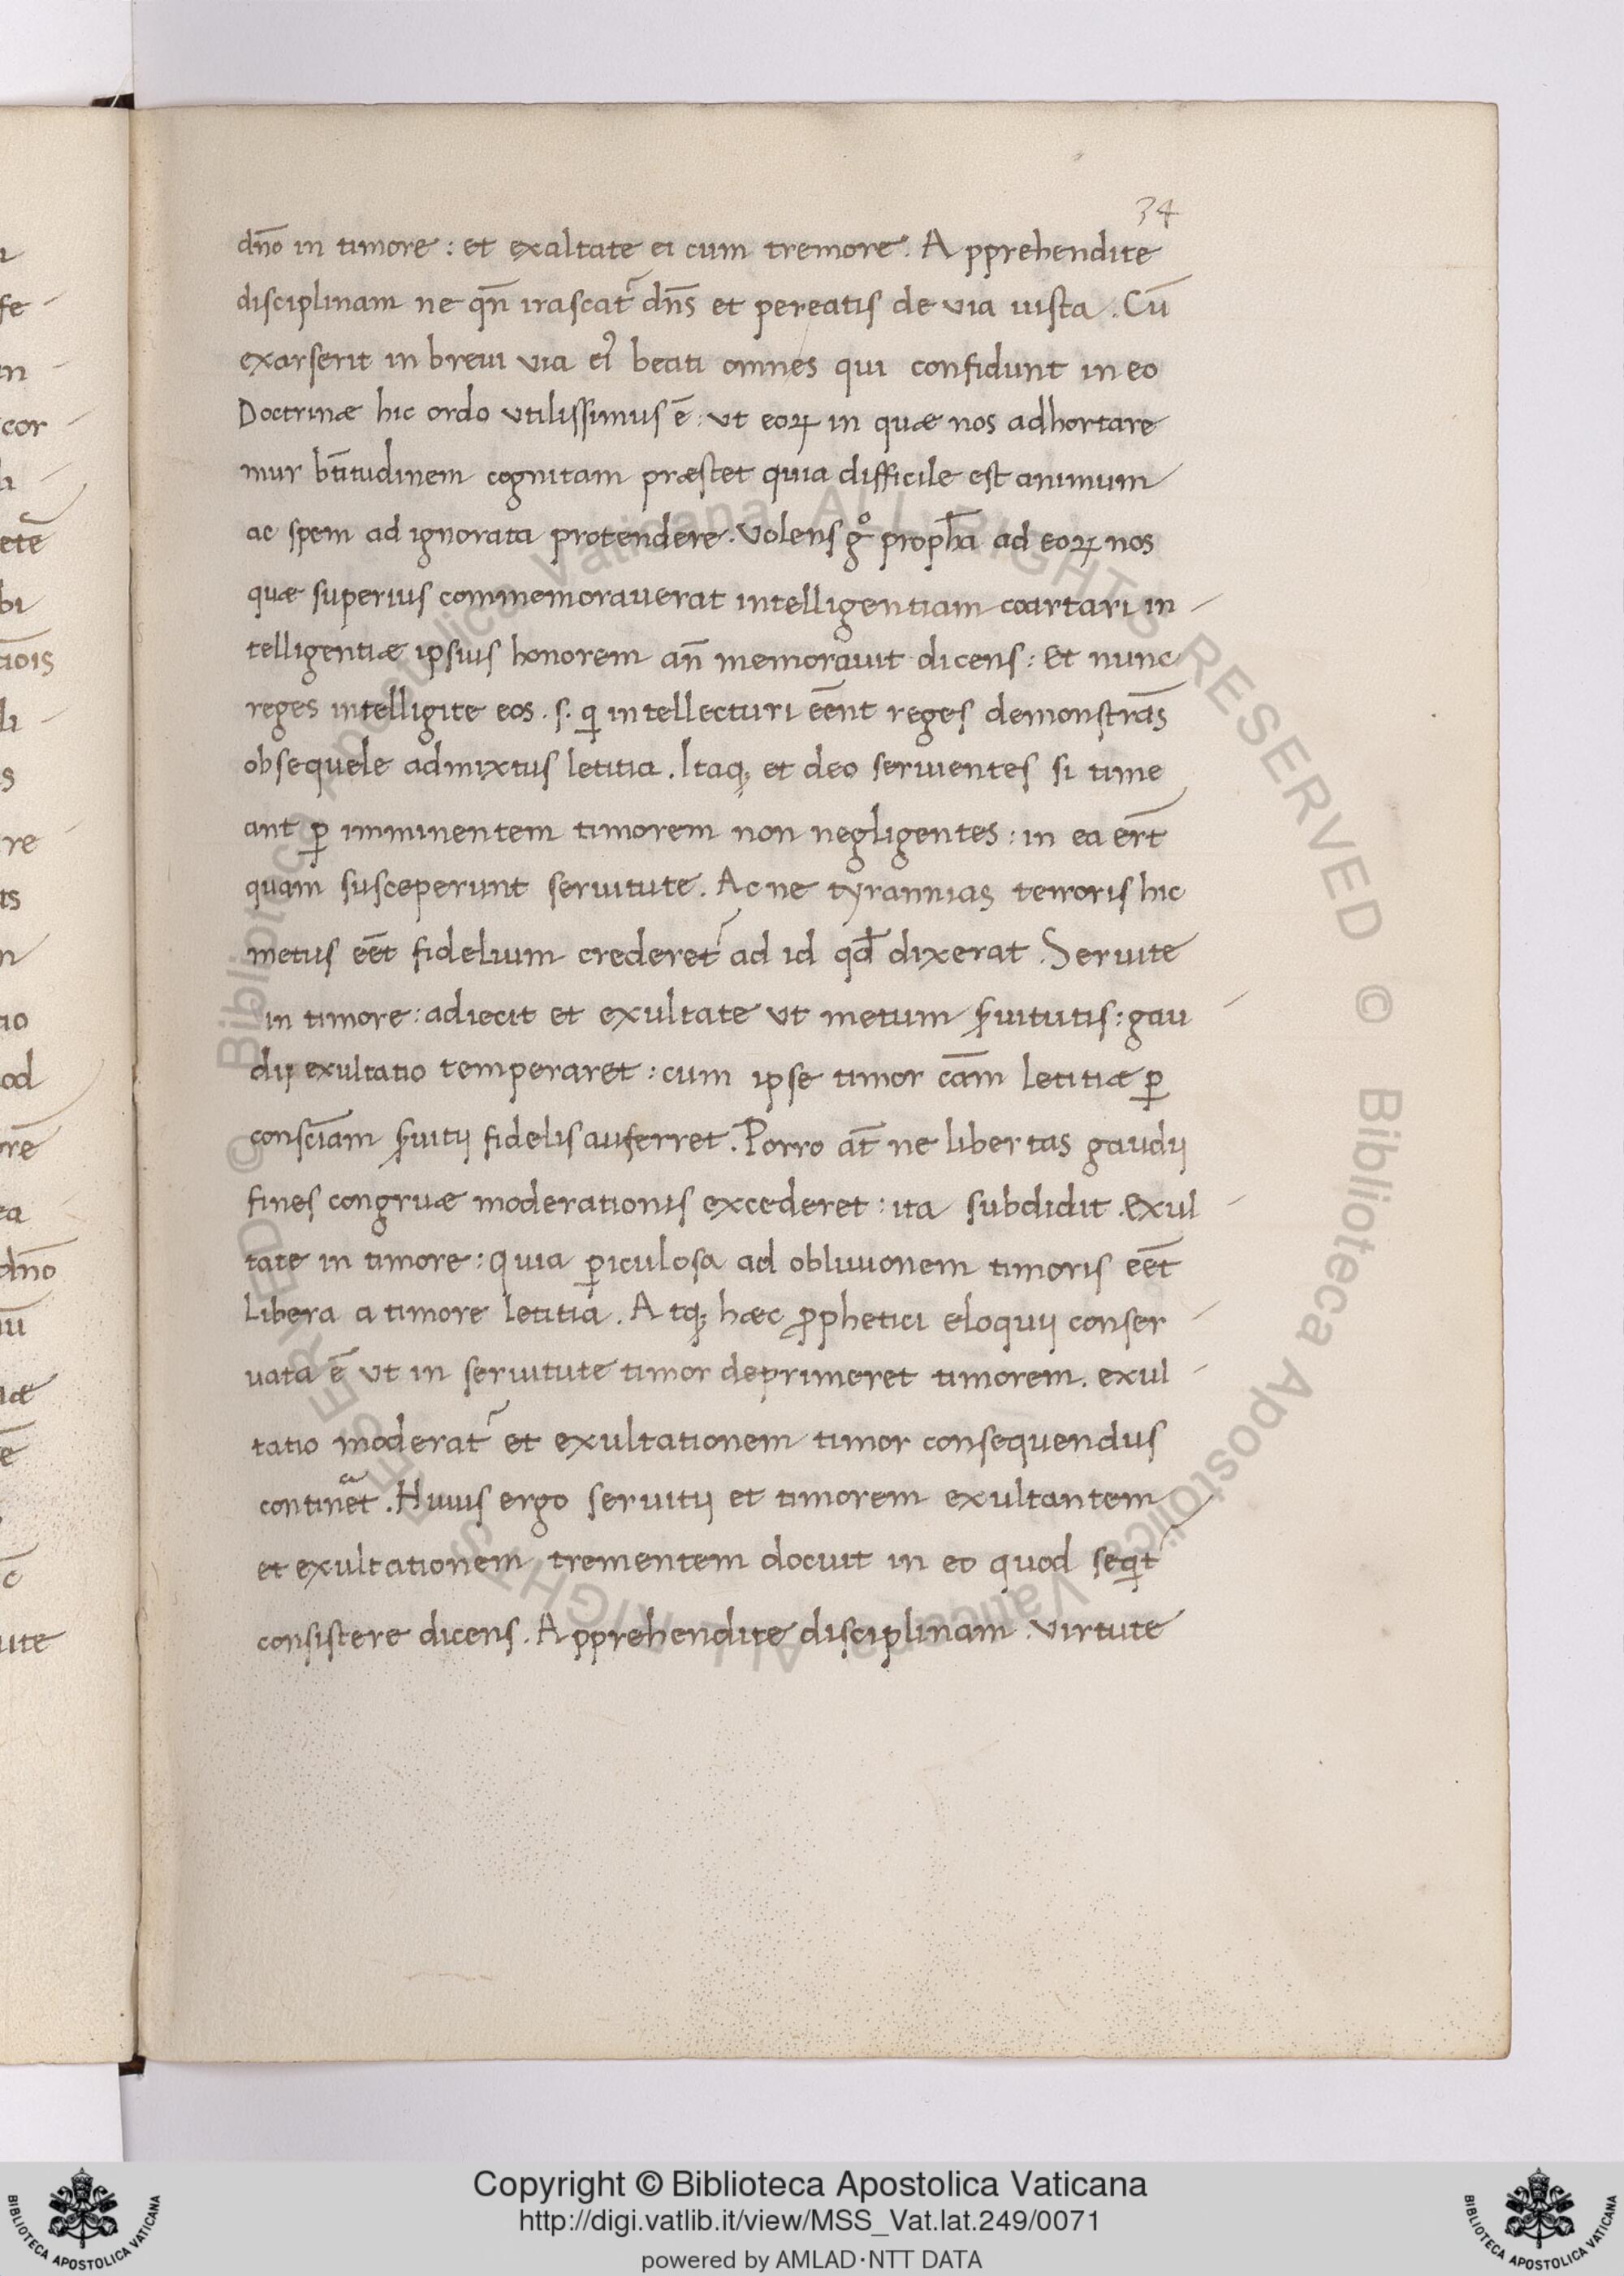 34
dn̄o in timore : et exaltate ei cum tremore . Apprehendite
disciplinam ne qn̄ irascat᷑ dn̄s et pereatis de via iusta . Cū
exarserit in breui via ei᷒ beati omnes qui confidunt in eo
Doctrinæ hic ordo vtilissimus ē : vt eoꝝ in quæ nos adhortare
mur bt̄itudinem cognitam præstet quia difficile est animum
ac spem ad ignorata protendere . Volens gͦ propħa ad eoꝝ nos
quæ superius commemorauerat intelligentiam coartari in
telligentiæ ipsius honorem an̄ memorauit dicens : Et nunc
reges intelligite eos . s . ꝗ intellecturi eēnt reges demonstrās
obsequele admixtus letitia . Itaqꝫ et deo seruientes si time
ant ꝑ imminentem timorem non negligentes : in ea ert̄
quam susceperunt seruitute . Ac ne tyrannias terroris hic
metus eēt fidelium crederet᷑ ad id qđ dixerat . Seruite
in timore : adiecit et exultate vt metum ẜuitutis : gau
dij exultatio temperaret : cum ipse timor cām letitiæ ꝑ
consciam̄ ẜuitij fidelis auferret . Porro at̄ ne libertas gaudij
fines congruæ moderationis excederet : ita subdidit . Exul
tate in timore : Quia ꝑiculosa ad obliuionem timoris eēt
libera a timore letitia . Atqꝫ hæc ꝓphetici eloquij conser
uata ē vt in seruitute timor deprimeret timorem . exul
tatio moderat᷑ et exultationem timor consequendus
continēt . Huius ergo seruitij et timorem exultantem
et exultationem trementem docuit in eo quod seꝗt᷑
consistere dicens . Apprehendite disciplinam . Virtute
fe
cor
etē
bi
tiōis
re
od
orē
dn̄o
uite
© Biblioteca Apostolica Vaticana ALL RIGHTS RESERVED © Biblioteca Apostolica Vaticana ALL RIGHTS RESERVED
Copyright © Biblioteca Apostolica Vaticana
http://digi.vatlib.it/view/MSS_Vat.lat.249/0071
powered by AMLAD·NTT DATA
BIBLIOTECA APOSTOLICA VATICANA
BIBLIOTECA APOSTOLICA VATICANA